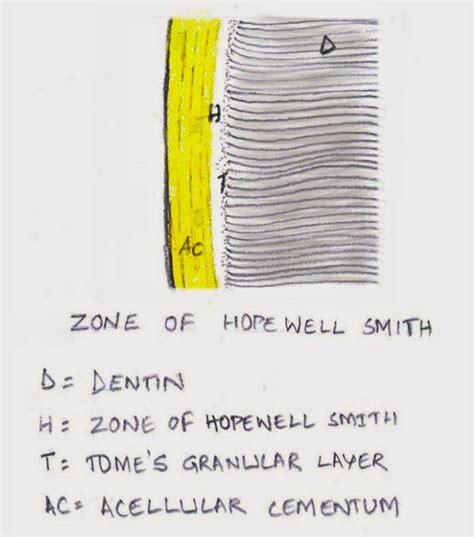 D
H
T
AC
ZONE OF HOPEWELL SMITH
D= DENTIN
H= ZONE OF HOPEWELL SMITH
T= TOME'S GRANULAR LAYER
AC= ACELLULAR CEMENTUM